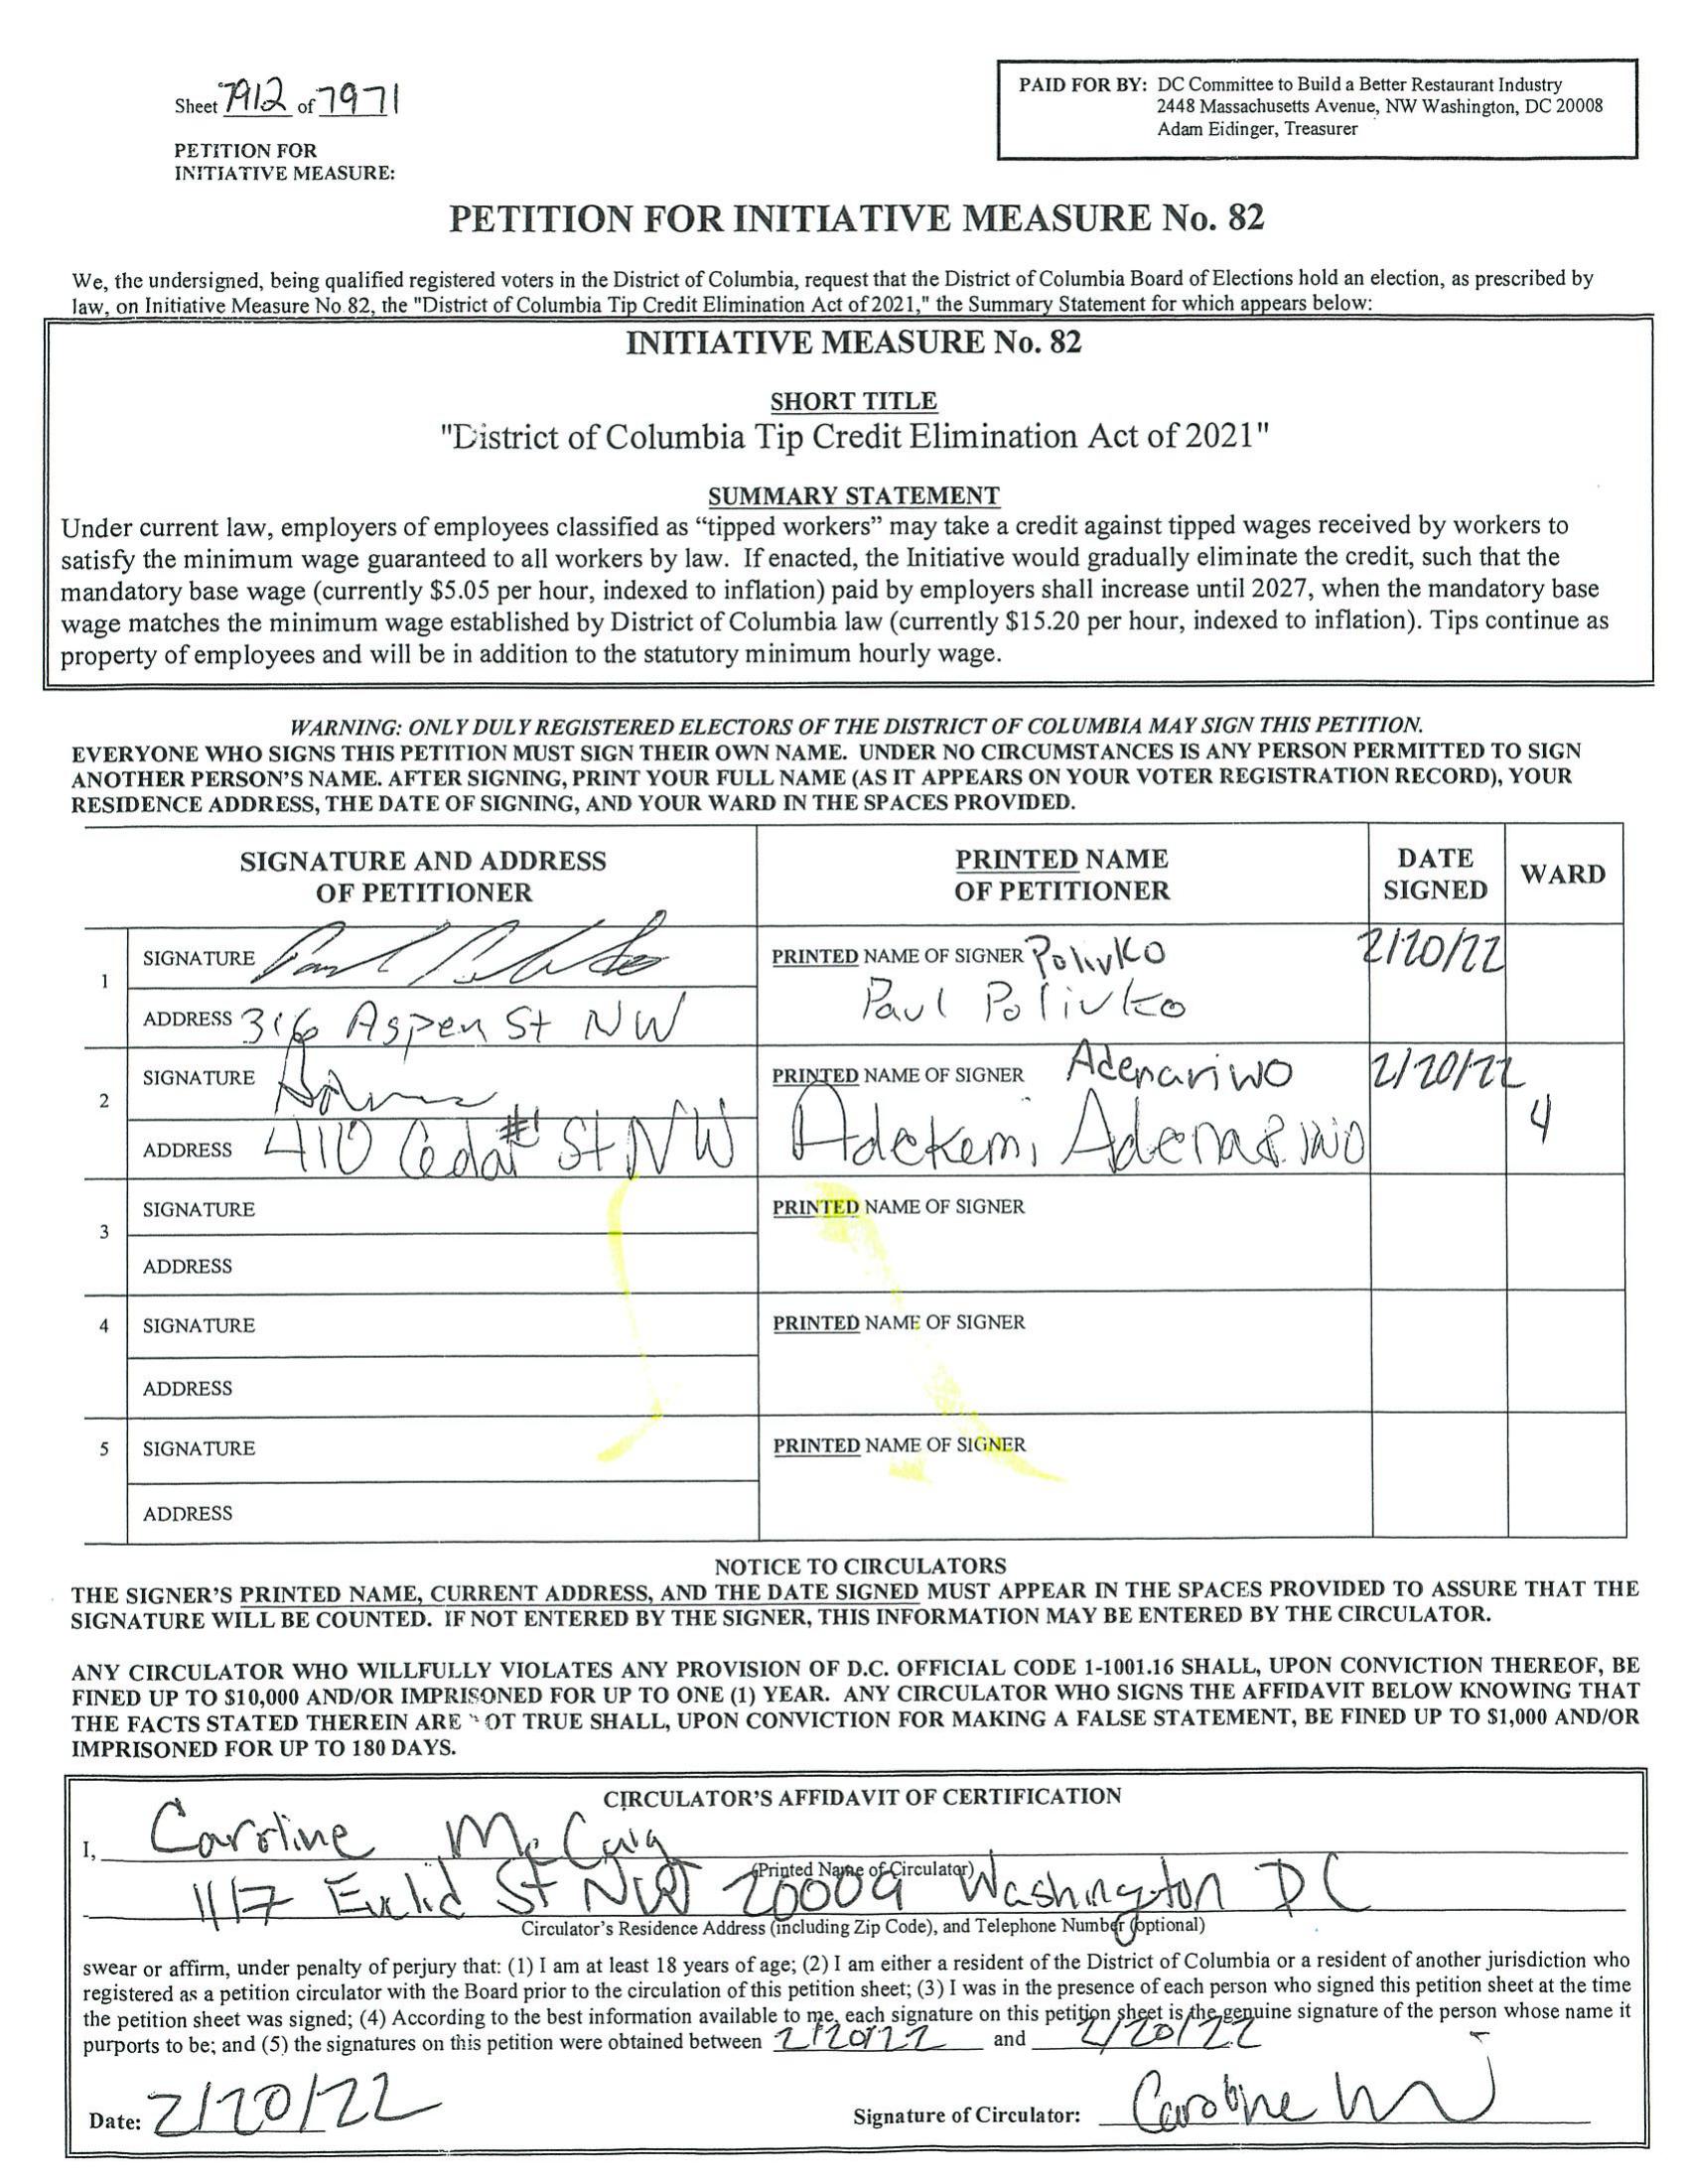 Sheet 7912 of 7971
PAID FOR BY: DC Committee to Build a Better Restaurant Industry
2448 Massachusetts Avenue, NW Washington, DC 20008
Adam Eidinger, Treasurer
PETITION FOR
INITIATIVE MEASURE:
PETITION FOR INITIATIVE MEASURE No. 82
We, the undersigned, being qualified registered voters in the District of Columbia, request that the District of Columbia Board of Elections hold an election, as prescribed by
law, on Initiative Measure No.82, the "District of Columbia Tip Credit Elimination Act of 2021," the Summary Statement for which appears below:
INITIATIVE MEASURE No. 82
SHORT TITLE
"District of Columbia Tip Credit Elimination Act of 2021"
SUMMARY STATEMENT
Under current law, employers of employees classified as “tipped workers” may take a credit against tipped wages received by workers to
satisfy the minimum wage guaranteed to all workers by law. If enacted, the Initiative would gradually eliminate the credit, such that the
mandatory base wage (currently $5.05 per hour, indexed to inflation) paid by employers shall increase until 2027, when the mandatory base
wage matches the minimum wage established by District of Columbia law (currently $15.20 per hour, indexed to inflation). Tips continue as
property of employees and will be in addition to the statutory minimum hourly wage.
WARNING: ONLY DULY REGISTERED ELECTORS OF THE DISTRICT OF COLUMBIA MAY SIGN THIS PETITION.
EVERYONE WHO SIGNS THIS PETITION MUST SIGN THEIR OWN NAME. UNDER NO CIRCUMSTANCES IS ANY PERSON PERMITTED TO SIGN
ANOTHER PERSON'S NAME. AFTER SIGNING, PRINT YOUR FULL NAME (AS IT APPEARS ON YOUR VOTER REGISTRATION RECORD), YOUR
RESIDENCE ADDRESS, THE DATE OF SIGNING, AND YOUR WARD IN THE SPACES PROVIDED.
SIGNATURE AND ADDRESS
OF PETITIONER
PRINTED NAME
OF PETITIONER
DATE
SIGNED
WARD
1
SIGNATURE
PRINTED NAME OF SIGNER Polivko
Paul Polivko
2/20/22
ADDRESS 316 Aspen St NW
2
SIGNATURE
PRINTED NAME OF SIGNER Adenariwo
Adekemi Adenariwo
2/20/22
4
ADDRESS 410 Cedar #1 St NW
3
SIGNATURE
PRINTED NAME OF SIGNER
ADDRESS
4
SIGNATURE
PRINTED NAME OF SIGNER
ADDRESS
5
SIGNATURE
PRINTED NAME OF SIGNER
ADDRESS
NOTICE TO CIRCULATORS
THE SIGNER'S PRINTED NAME, CURRENT ADDRESS, AND THE DATE SIGNED MUST APPEAR IN THE SPACES PROVIDED TO ASSURE THAT THE
SIGNATURE WILL BE COUNTED. IF NOT ENTERED BY THE SIGNER, THIS INFORMATION MAY BE ENTERED BY THE CIRCULATOR.
ANY CIRCULATOR WHO WILLFULLY VIOLATES ANY PROVISION OF D.C. OFFICIAL CODE 1-1001.16 SHALL, UPON CONVICTION THEREOF, BE
FINED UP TO $10,000 AND/OR IMPRISONED FOR UP TO ONE (1) YEAR. ANY CIRCULATOR WHO SIGNS THE AFFIDAVIT BELOW KNOWING THAT
THE FACTS STATED THEREIN ARE OT TRUE SHALL, UPON CONVICTION FOR MAKING A FALSE STATEMENT, BE FINED UP TO $1,000 AND/OR
IMPRISONED FOR UP TO 180 DAYS.
CIRCULATOR'S AFFIDAVIT OF CERTIFICATION
I, Caroline McCaig
(Printed Name of Circulator)
1117 Euclid St NW 20009 Washington DC
Circulator's Residence Address (including Zip Code), and Telephone Number (optional)
swear or affirm, under penalty of perjury that: (1) I am at least 18 years of age; (2) I am either a resident of the District of Columbia or a resident of another jurisdiction who
registered as a petition circulator with the Board prior to the circulation of this petition sheet; (3) I was in the presence of each person who signed this petition sheet at the time
the petition sheet was signed; (4) According to the best information available to me, each signature on this petition sheet is the genuine signature of the person whose name it
purports to be; and (5) the signatures on this petition were obtained between 2/20/22 and 2/20/22
Date: 2/20/22
Signature of Circulator: Caroline